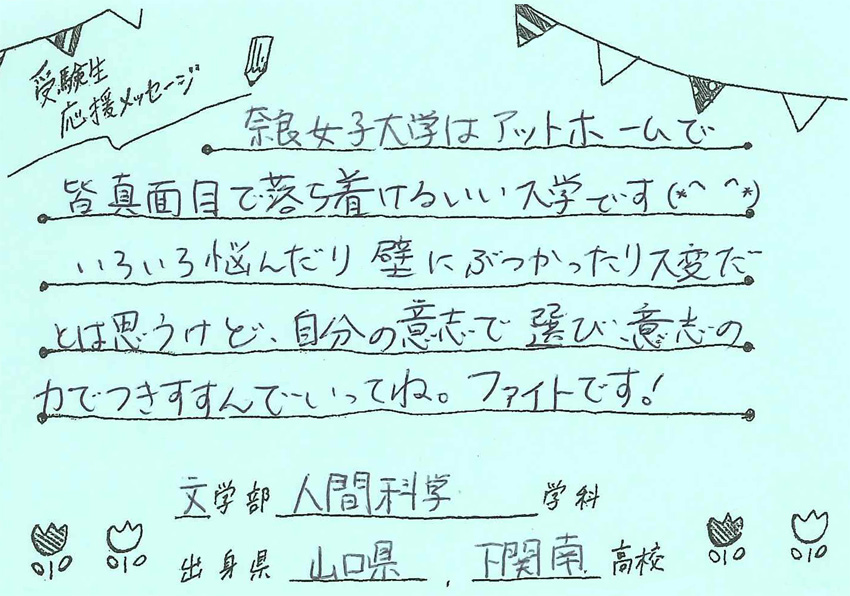 受験生
応援メッセージ
奈良女子大学はアットホームで
皆真面目で落ち着けるいい大学です(*^ ^*)
いろいろ悩んだり壁にぶつかったり大変だ
とは思うけど、自分の意志で選び、意志の
力でつきすすんでいってね。ファイトです!
文学部 人間科学 学科
出身県 山口県 , 下関南 高校